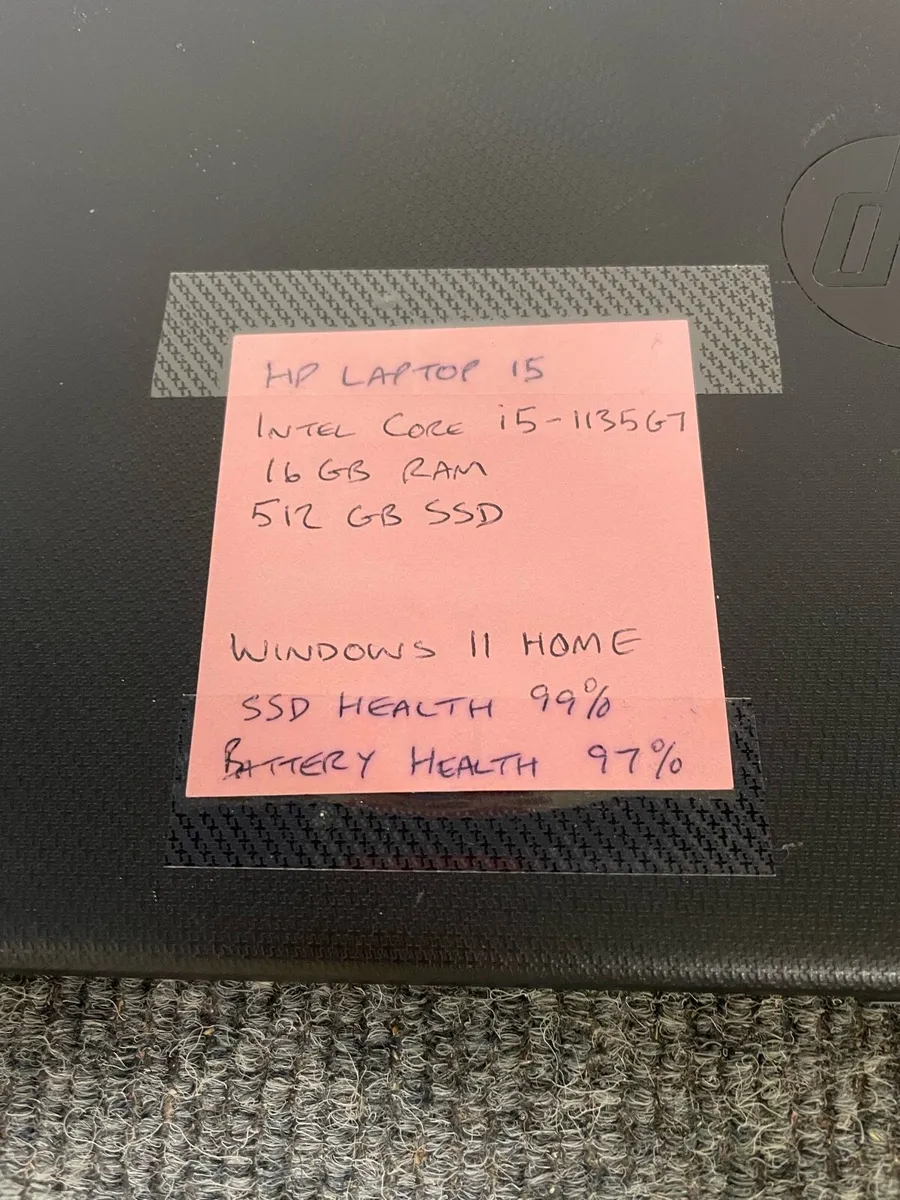 HP LAPTOP 15
INTEL CORE i5-1135G7
16 GB RAM
512 GB SSD
WINDOWS 11 HOME
SSD HEALTH 99%
BATTERY HEALTH 97%